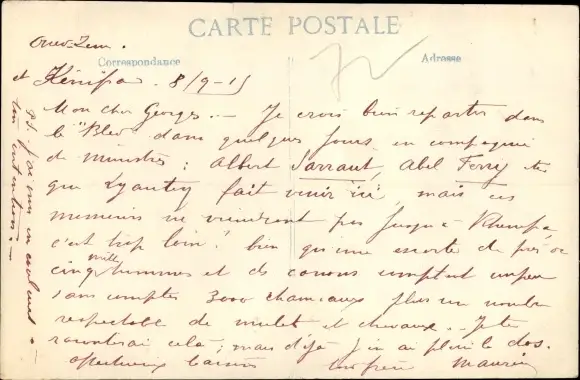 CARTE POSTALE
Correspondance
Adresse
Oued-Zem.
et Kénifra. 8/9-15
Mon cher Georges. - Je crois bien repartir dans
le "Bled" dans quelques jours en compagnie
de ministres : Albert Sarraut, Abel Ferry etc
que Lyautey fait venir ici, mais ces
messieurs ne viendront pas jusqu'à
c'est trop loin ! bien qu'une escorte de près de
cinq mille hommes et des canons comptent un peu
sans compter 3000 chameaux plus un nombre
respectable de mulets et chevaux. - Je te
raconterai cela ; mais déjà j'en ai plein le dos.
Affectueux baisers ton frère Maurice
P.S. J'ai mis un
ton intention : -